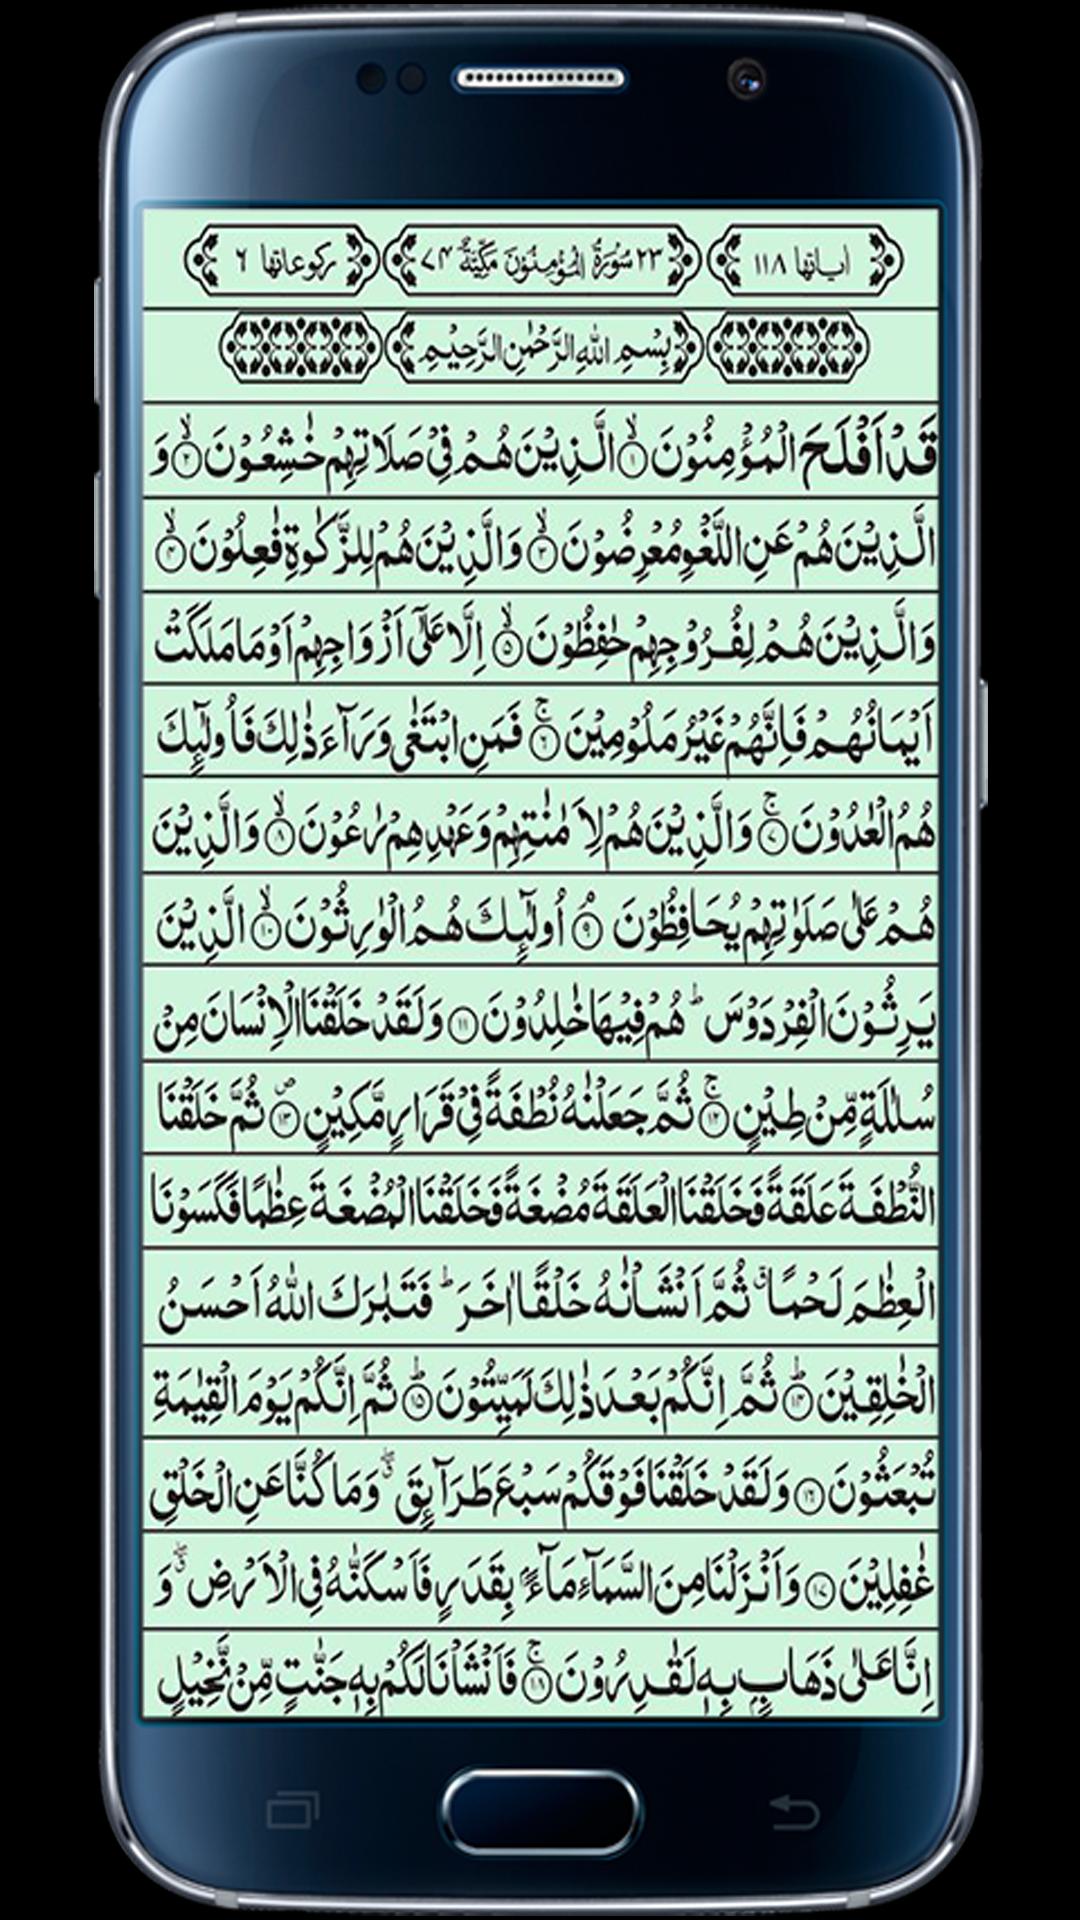 اٰیاتها ١١٨ ٢٣ سُوْرَةُ الْمُؤْمِنُوْنَ مَكِّيَّةٌ ٧٤ ركوعاتها ٦
بِسْمِ اللّٰهِ الرَّحْمٰنِ الرَّحِيْمِ
قَدْ اَفْلَحَ الْمُؤْمِنُوْنَ ۙ﴿١﴾ الَّذِيْنَ هُمْ فِيْ صَلَاتِهِمْ خٰشِعُوْنَ ۙ﴿٢﴾ وَ
الَّذِيْنَ هُمْ عَنِ اللَّغْوِ مُعْرِضُوْنَ ۙ﴿٣﴾ وَالَّذِيْنَ هُمْ لِلزَّكٰوةِ فٰعِلُوْنَ ۙ﴿٤﴾
وَالَّذِيْنَ هُمْ لِفُرُوْجِهِمْ حٰفِظُوْنَ ۙ﴿٥﴾ اِلَّا عَلٰٓى اَزْوَاجِهِمْ اَوْ مَا مَلَكَتْ
اَيْمَانُهُمْ فَاِنَّهُمْ غَيْرُ مَلُوْمِيْنَ ۚ﴿٦﴾ فَمَنِ ابْتَغٰى وَرَآءَ ذٰلِكَ فَاُولٰٓئِكَ
هُمُ الْعٰدُوْنَ ۚ﴿٧﴾ وَالَّذِيْنَ هُمْ لِاَمٰنٰتِهِمْ وَعَهْدِهِمْ رٰعُوْنَ ۙ﴿٨﴾ وَالَّذِيْنَ
هُمْ عَلٰى صَلَوٰتِهِمْ يُحَافِظُوْنَ ۘ﴿٩﴾ اُولٰٓئِكَ هُمُ الْوٰرِثُوْنَ ۙ﴿١٠﴾ الَّذِيْنَ
يَرِثُوْنَ الْفِرْدَوْسَ ؕ هُمْ فِيْهَا خٰلِدُوْنَ ﴿١١﴾ وَلَقَدْ خَلَقْنَا الْاِنْسَانَ مِنْ
سُلٰلَةٍ مِّنْ طِيْنٍ ۚ﴿١٢﴾ ثُمَّ جَعَلْنٰهُ نُطْفَةً فِيْ قَرَارٍ مَّكِيْنٍ ۪﴿١٣﴾ ثُمَّ خَلَقْنَا
النُّطْفَةَ عَلَقَةً فَخَلَقْنَا الْعَلَقَةَ مُضْغَةً فَخَلَقْنَا الْمُضْغَةَ عِظٰمًا فَكَسَوْنَا
الْعِظٰمَ لَحْمًا ۗ ثُمَّ اَنْشَاْنٰهُ خَلْقًا اٰخَرَ ؕ فَتَبٰرَكَ اللّٰهُ اَحْسَنُ
الْخٰلِقِيْنَ ؕ﴿١٤﴾ ثُمَّ اِنَّكُمْ بَعْدَ ذٰلِكَ لَمَيِّتُوْنَ ؕ﴿١٥﴾ ثُمَّ اِنَّكُمْ يَوْمَ الْقِيٰمَةِ
تُبْعَثُوْنَ ﴿١٦﴾ وَلَقَدْ خَلَقْنَا فَوْقَكُمْ سَبْعَ طَرَآئِقَ ۖ وَمَا كُنَّا عَنِ الْخَلْقِ
غٰفِلِيْنَ ﴿١٧﴾ وَاَنْزَلْنَا مِنَ السَّمَآءِ مَآءًۢ بِقَدَرٍ فَاَسْكَنّٰهُ فِى الْاَرْضِ ۖ وَ
اِنَّا عَلٰى ذَهَابٍۭ بِهٖ لَقٰدِرُوْنَ ۚ﴿١٨﴾ فَاَنْشَاْنَا لَكُمْ بِهٖ جَنّٰتٍ مِّنْ نَّخِيْلٍ